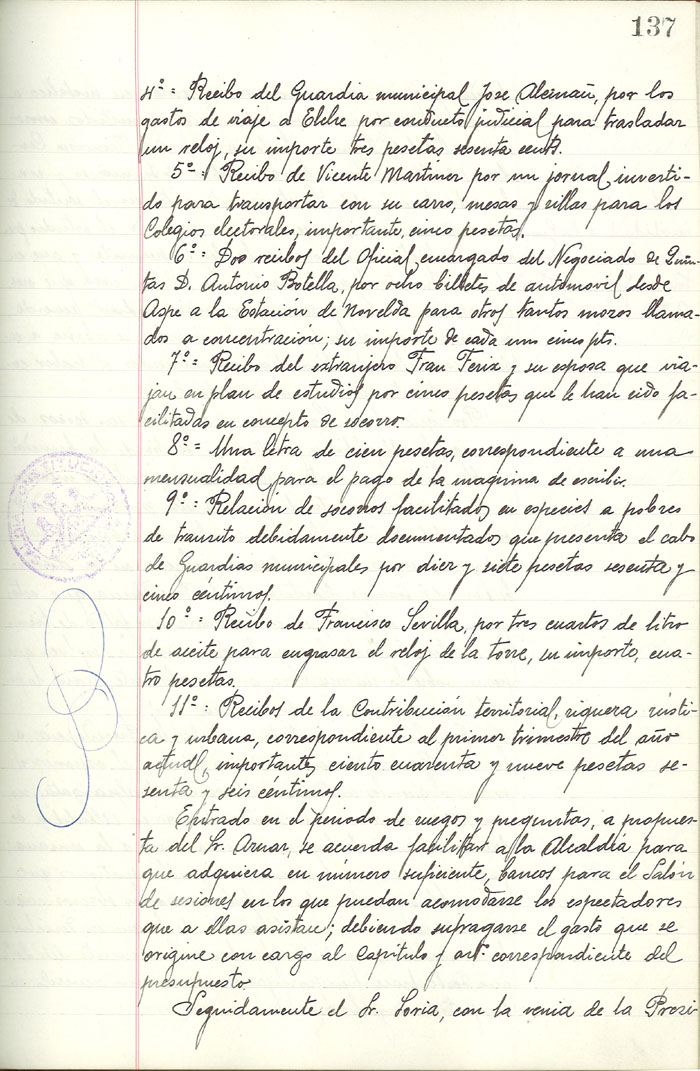 137
4º = Recibo del Guardia municipal Jose Alemañ, por los
gastos de viaje a Elche por conducto judicial para trasladar
un reloj, su importe tres pesetas sesenta cents.
5º = Recibo de Vicente Martinez por un jornal inverti-
do para transportar con su carro, mesas y sillas para los
Colegios electorales, importante, cinco pesetas.
6º = Dos recibos del Oficial encargado del Negociado de Quin-
tas D. Antonio Botella, por ocho billetes de automovil desde
Aspe a la Estación de Novelda para otros tantos mozos llama-
dos a concentración; su importe de cada uno cinco pts.
7º = Recibo del extranjero Fran Ferix y su esposa que via-
jan en plan de estudios por cinco pesetas que le han sido fa-
cilitadas en concepto de socorro.
8º = Una letra de cien pesetas, correspondiente a una
mensualidad para el pago de la maquina de escribir.
9º = Relación de socorros facilitados en especies a pobres
de transito debidamente documentados que presenta el cabo
de Guardias municipales por diez y siete pesetas sesenta y
cinco céntimos.
10º = Recibo de Francisco Sevilla, por tres cuartos de litro
de aceite para engrasar el reloj de la torre, su importe, cua-
tro pesetas.
11º = Recibos de la Contribución territorial, riqueza rústi-
ca y urbana, correspondiente al primer trimestre del año
actual, importantes ciento cuarenta y nueve pesetas se-
senta y seis céntimos.
Entrado en el periodo de ruegos y preguntas, a propues-
ta del Sr. Aznar, se acuerda facilitar a la Alcaldía para
que adquiera en número suficiente, bancos para el Salón
de sesiones en los que puedan acomodarse los espectadores
que a ellas asistan; debiendo sufragarse el gasto que se
origine con cargo al Capítulo y artº correspondiente del
presupuesto.
Seguidamente el Sr. Soria, con la venia de la Presi-